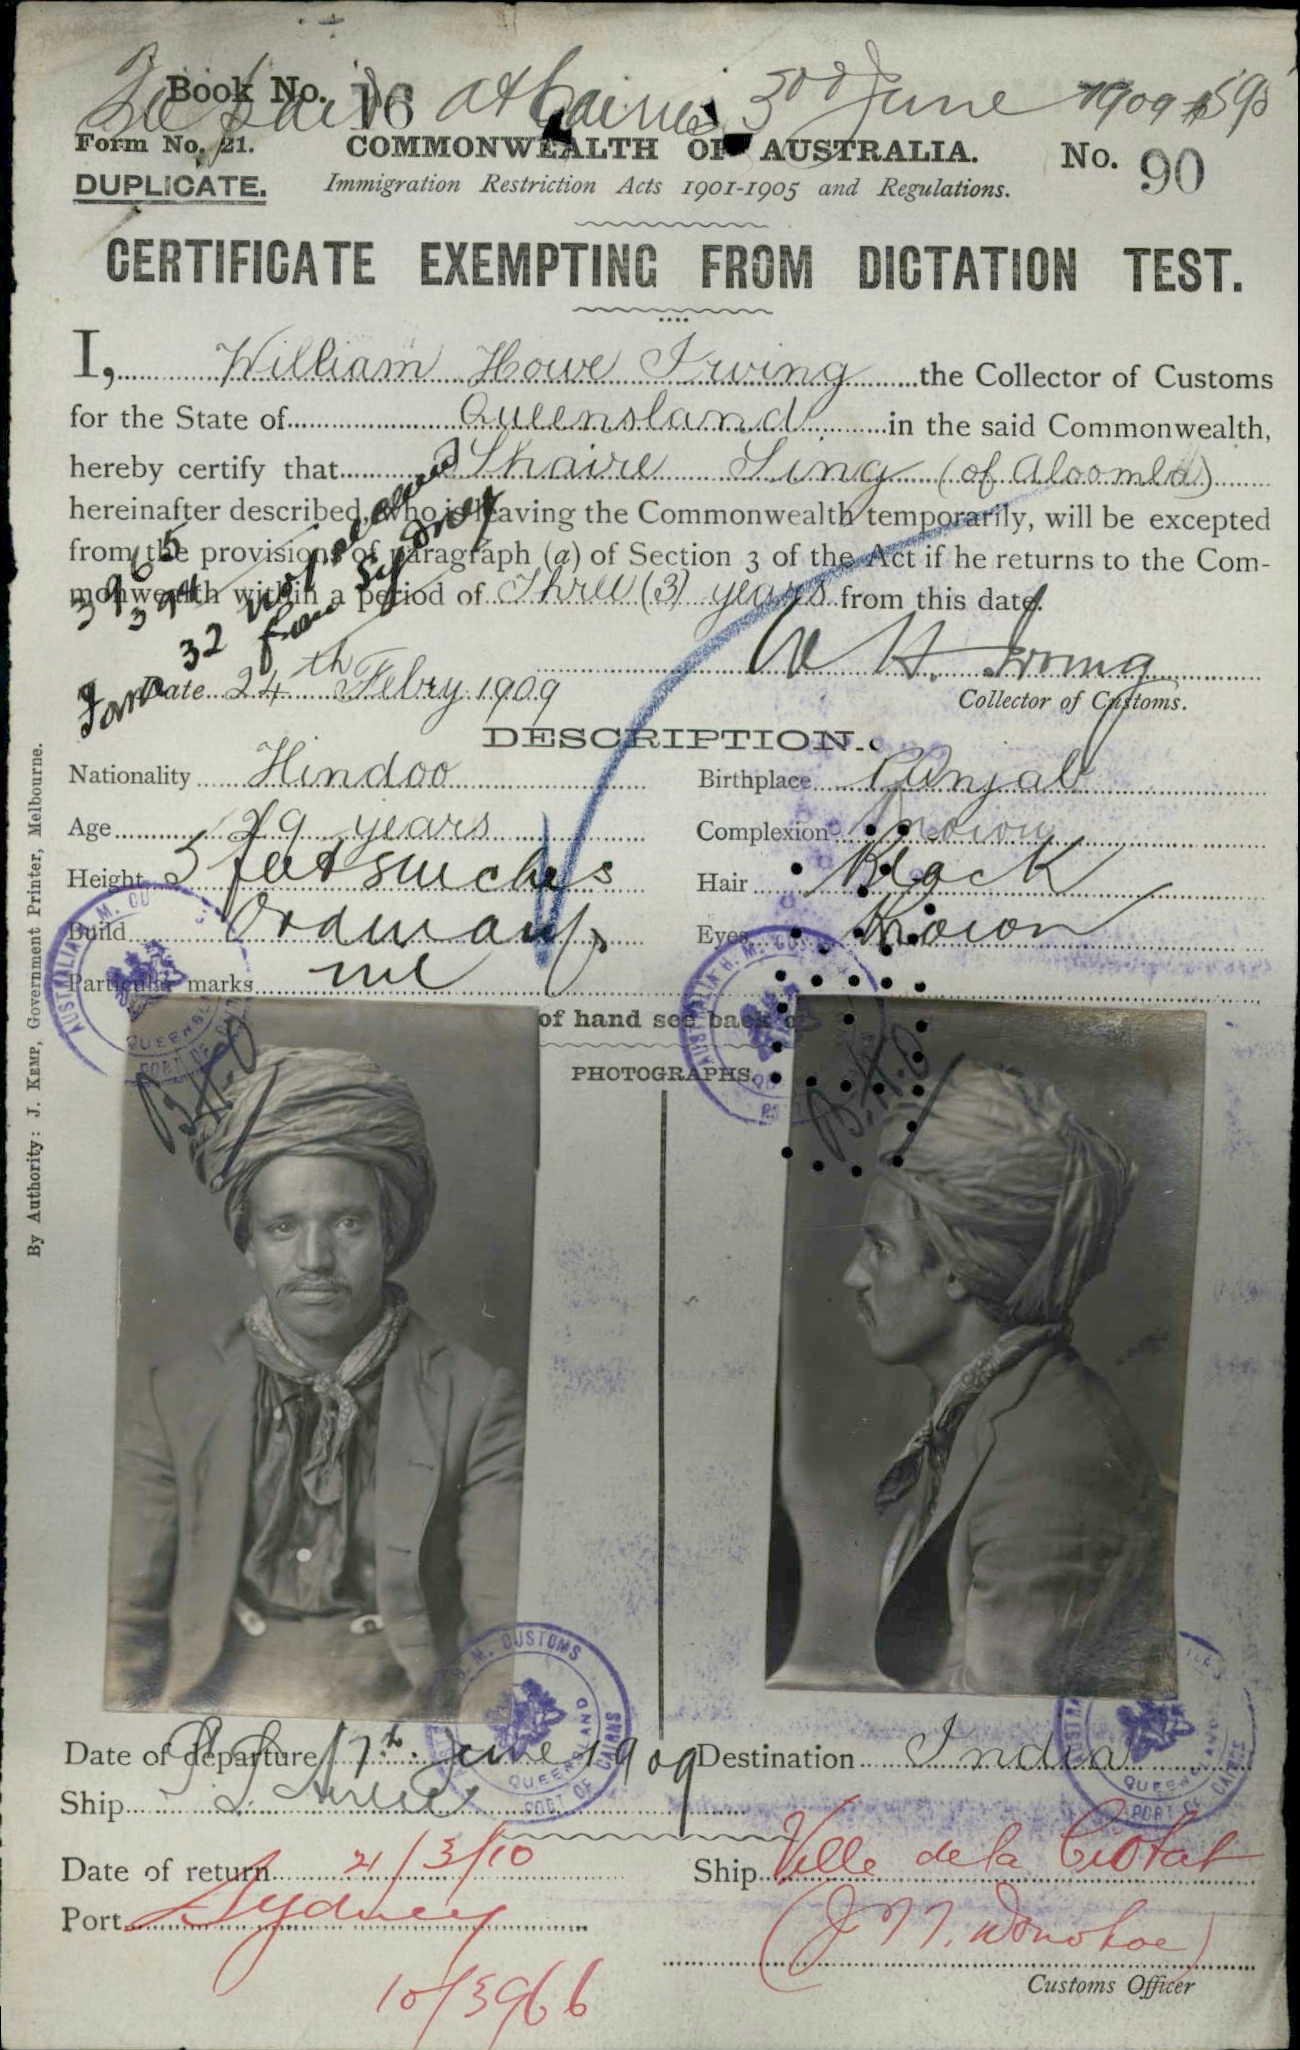 Book No. 16 at Cairns 3rd June 1909
Form No. 21. COMMONWEALTH OF AUSTRALIA. No. 90
DUPLICATE. Immigration Restriction Acts 1901-1905 and Regulations.
CERTIFICATE EXEMPTING FROM DICTATION TEST.
I, William Howe Irving the Collector of Customs
for the State of Queensland in the said Commonwealth,
hereby certify that Shaire Sing (of Aloomba)
hereinafter described, who is leaving the Commonwealth temporarily, will be excepted
from the provisions of paragraph (a) of Section 3 of the Act if he returns to the Com-
monwealth within a period of Three (3) years from this date.
3965
394
32
from Sydney
W H Irving
Date 24th Febry 1909
Collector of Customs.
DESCRIPTION.
Nationality Hindoo Birthplace Punjab
Age 29 years Complexion Brown
Height 5 feet 5 inches Hair Black
Build Ordinary Eyes Brown
Particular marks nil
of hand see back of
PHOTOGRAPHS.
B.H.O
B.H.O
Date of departure 17th June 1909 Destination India
Ship
Date of return 21/3/10 Ship Ville de la Ciotat
Port Sydney
(J. T. T. Donohoe)
Customs Officer
10/3966
By Authority: J. KEMP, Government Printer, Melbourne.
AUSTRALIA H. M. CUSTOMS QUEENSLAND PORT OF CAIRNS